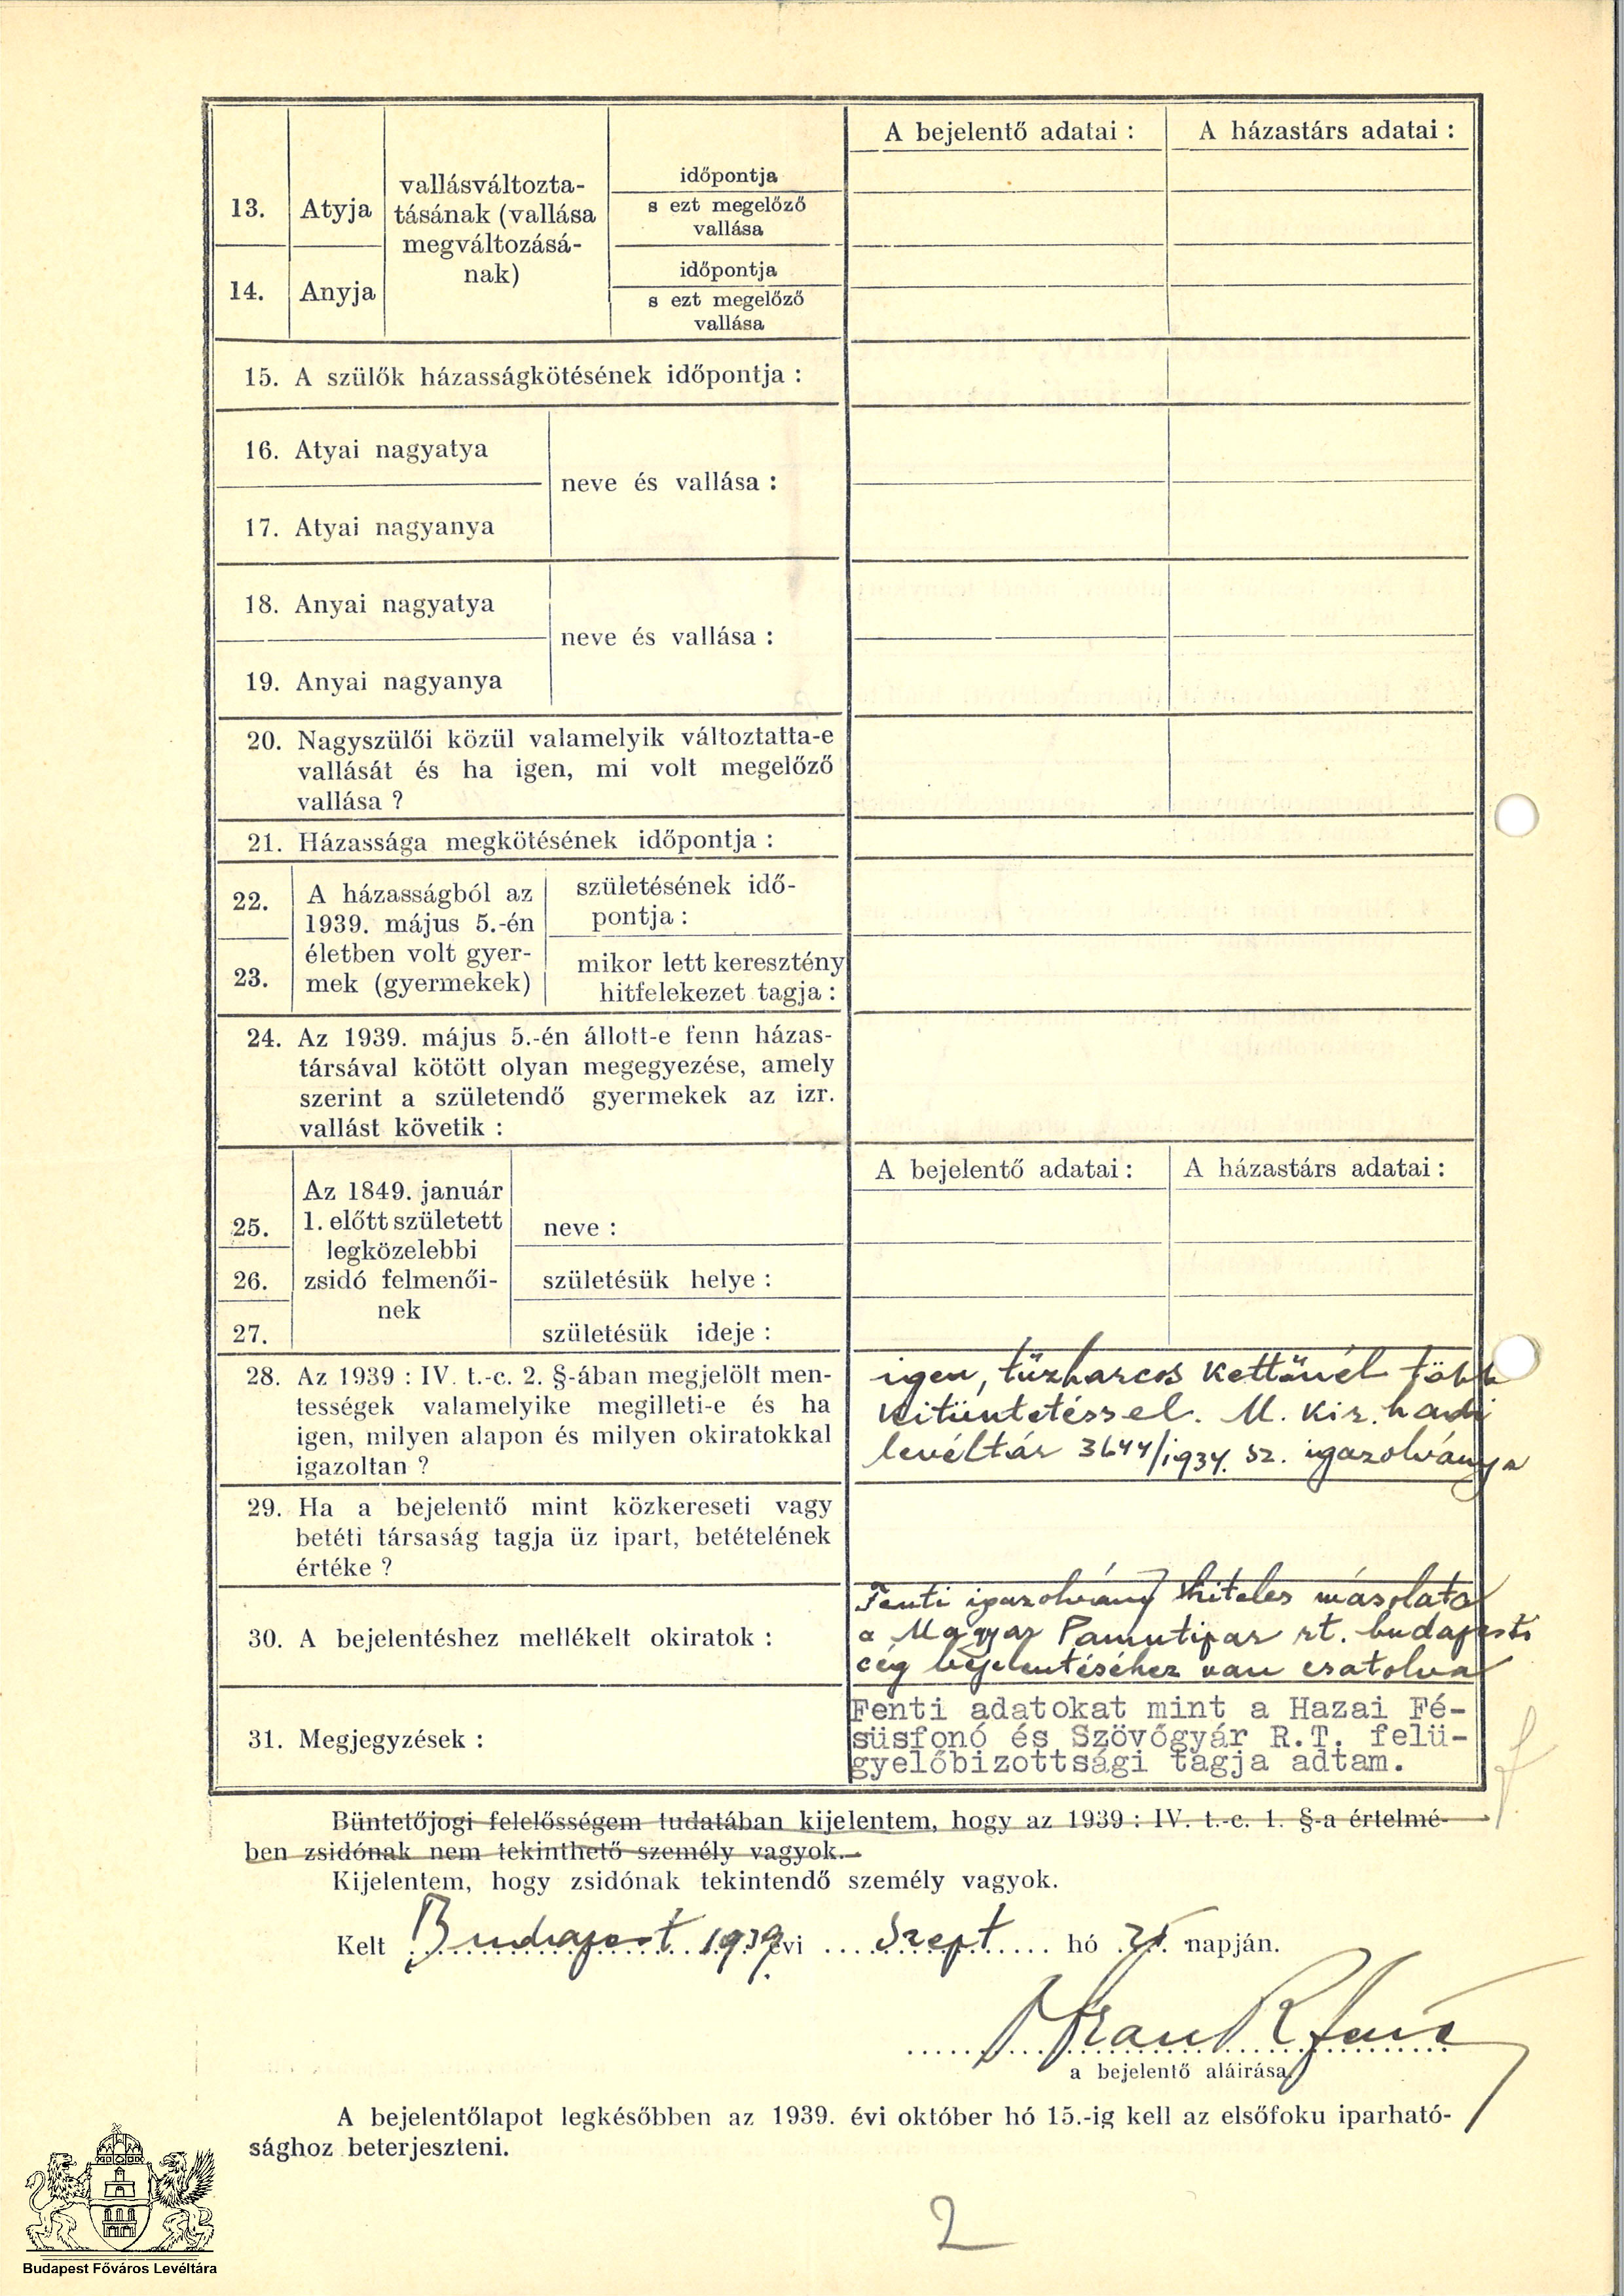 A bejelentő adatai :
A házastárs adatai :
13. Atyja
14. Anyja
vallásváltozta-
tásának (vallása
megváltozásá-
nak)
időpontja
s ezt megelőző
vallása
időpontja
s ezt megelőző
vallása
15. A szülők házasságkötésének időpontja :
16. Atyai nagyatya
17. Atyai nagyanya
neve és vallása :
18. Anyai nagyatya
19. Anyai nagyanya
neve és vallása :
20. Nagyszülői közül valamelyik változtatta-e
vallását és ha igen, mi volt megelőző
vallása ?
21. Házassága megkötésének időpontja :
22.
23.
A házasságból az
1939. május 5.-én
életben volt gyer-
mek (gyermekek)
születésének idő-
pontja :
mikor lett keresztény
hitfelekezet tagja :
24. Az 1939. május 5.-én állott-e fenn házas-
társával kötött olyan megegyezése, amely
szerint a születendő gyermekek az izr.
vallást követik :
A bejelentő adatai :
A házastárs adatai :
25.
26.
27.
Az 1849. január
1. előtt született
legközelebbi
zsidó felmenői-
nek
neve :
születésük helye :
születésük ideje :
28. Az 1939 : IV. t.-c. 2. §-ában megjelölt men-
tességek valamelyike megilleti-e és ha
igen, milyen alapon és milyen okiratokkal
igazoltan ?
igen, tűzharcos kettőnél több
kitüntetéssel. M. kir. hadi
levéltár sz. igazolványa
29. Ha a bejelentő mint közkereseti vagy
betéti társaság tagja űz ipart, betételének
értéke ?
30. A bejelentéshez mellékelt okiratok :
Fenti igazolvány hiteles másolata
a Magyar Pamutipar rt. budapesti
cég bejelentéséhez van csatolva
31. Megjegyzések :
Fenti adatokat mint a Hazai Fé-
süsfonó és Szövőgyár R.T. felü-
gyelőbizottsági tagja adtam.
Büntetőjogi felelősségem tudatában kijelentem, hogy az 1939 : IV. t.-c. 1. §-a értelmé-
ben zsidónak nem tekinthető személy vagyok.
Kijelentem, hogy zsidónak tekintendő személy vagyok.
Kelt Budapest 1939 évi Szept hó napján.
a bejelentő aláirása
A bejelentőlapot legkésőbben az 1939. évi október hó 15.-ig kell az elsőfoku iparható-
sághoz beterjeszteni.
2
Budapest Főváros Levéltára